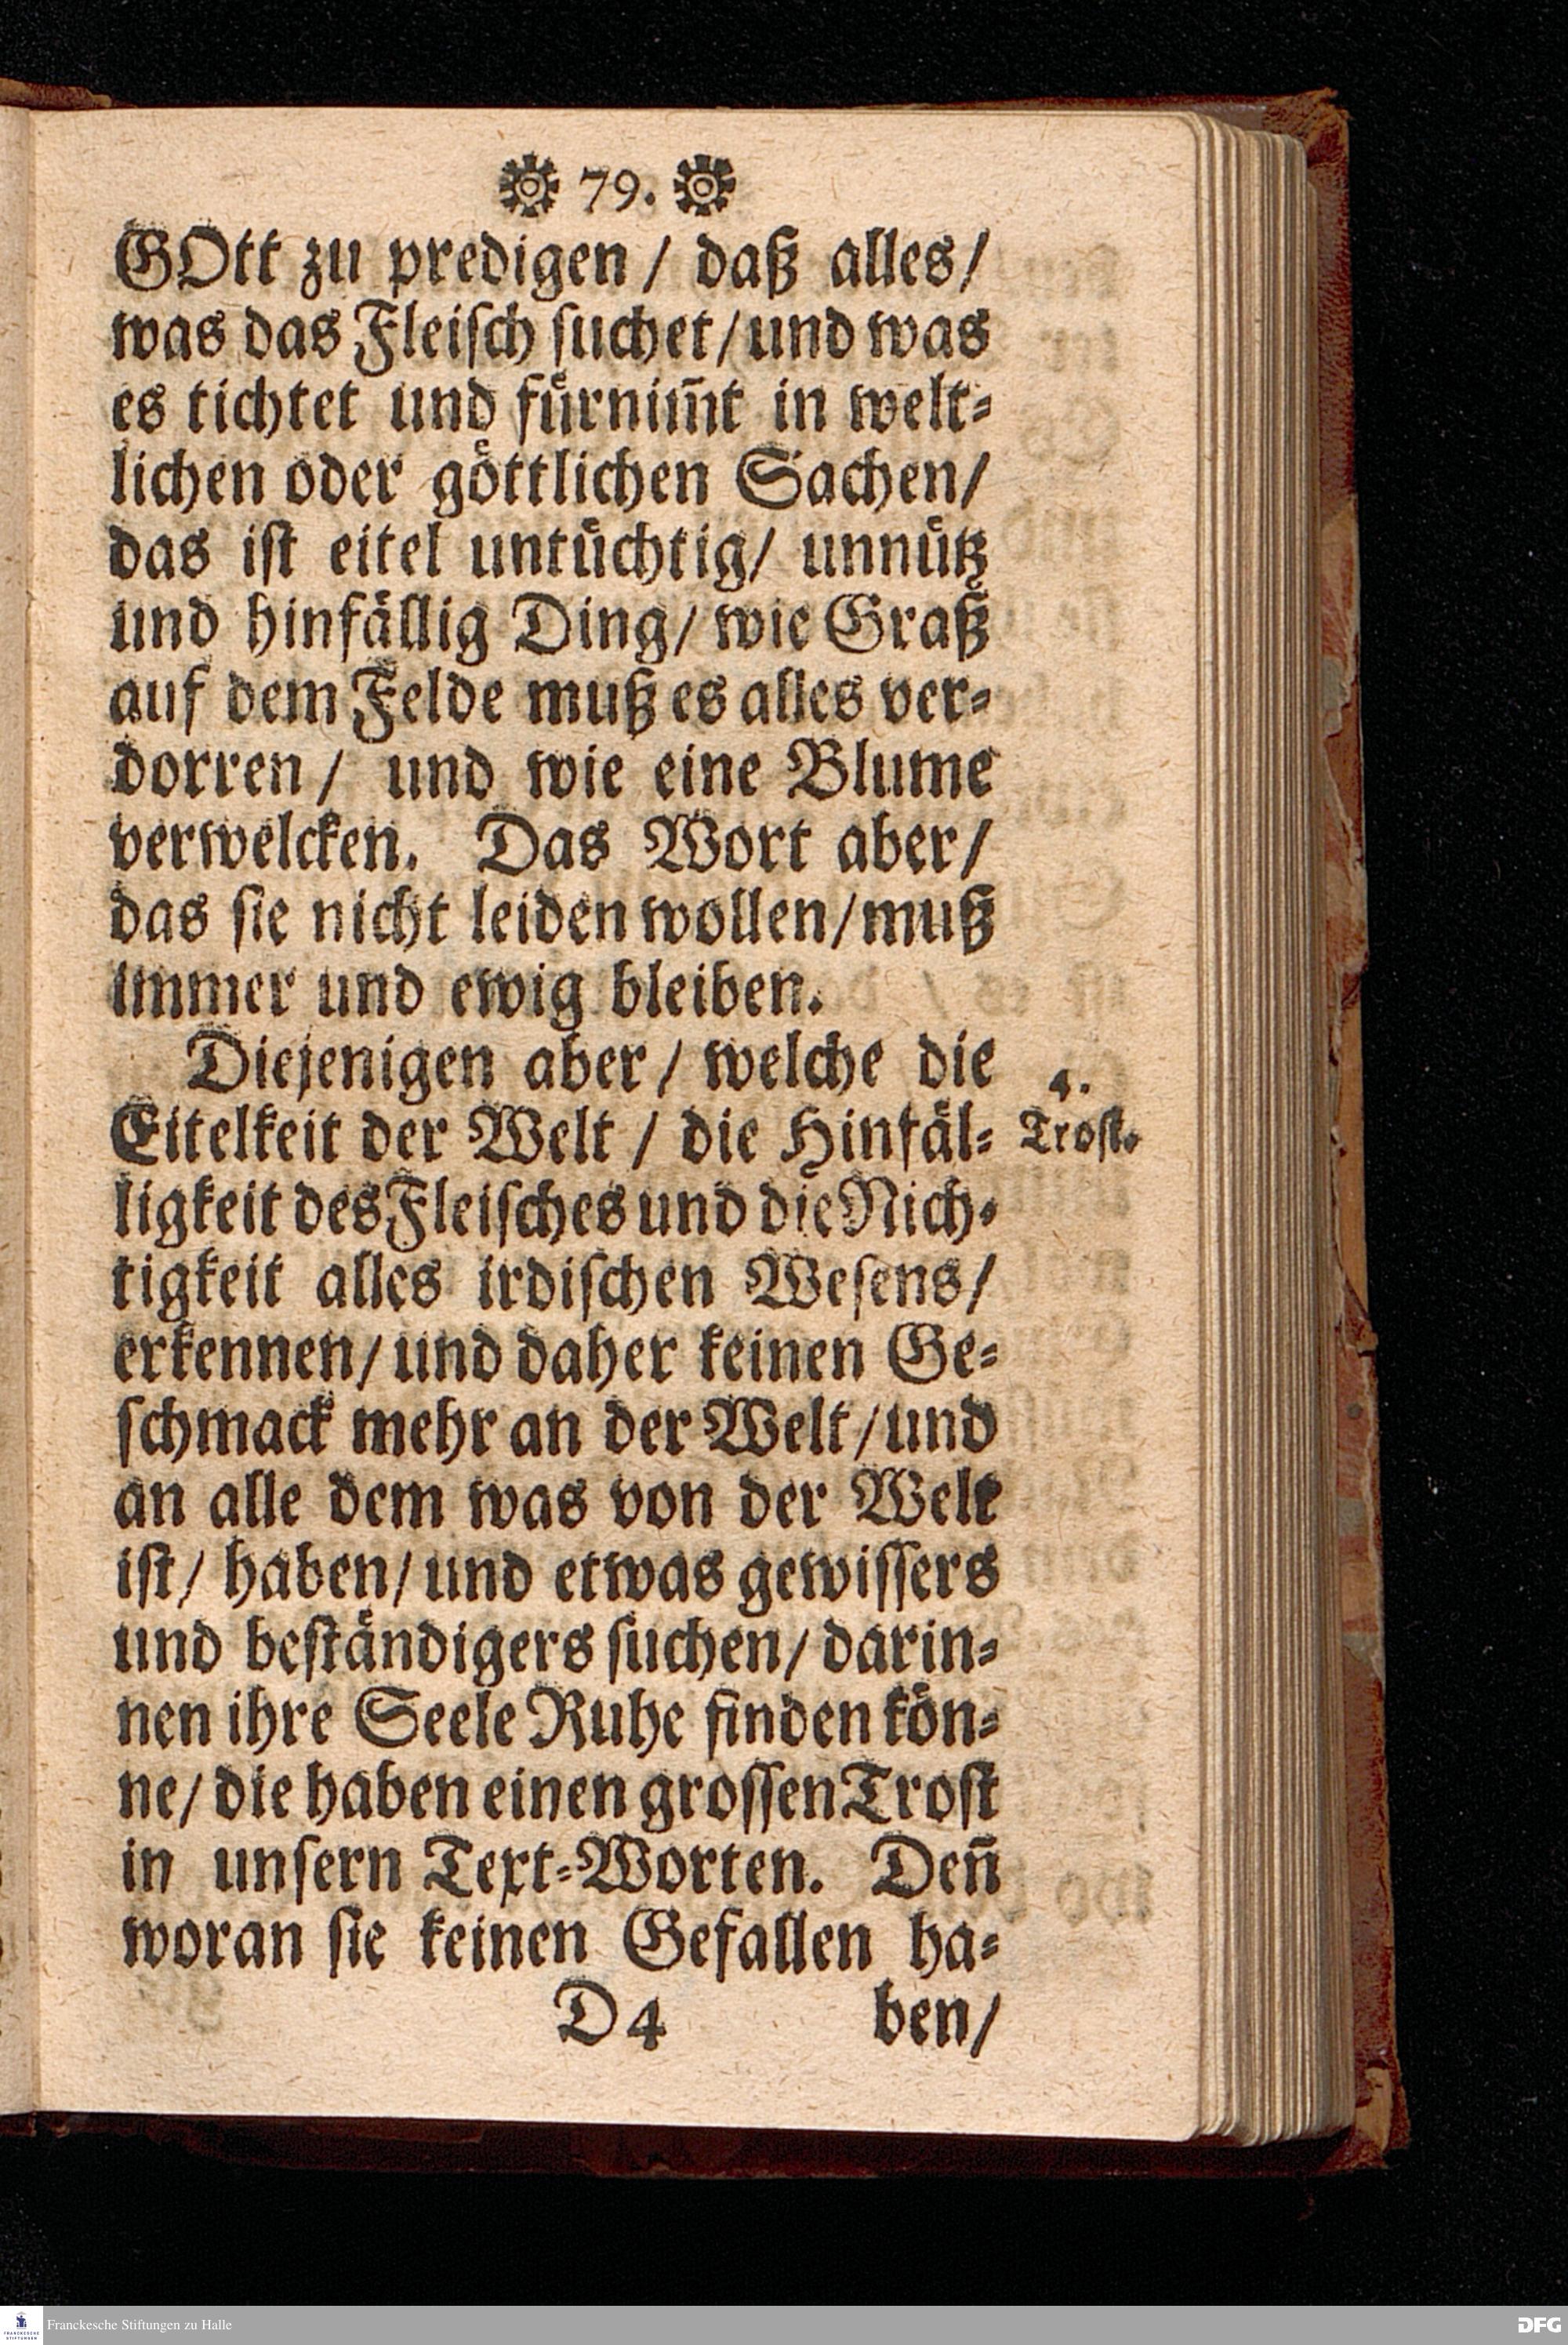 79.
GOtt zu predigen / daß alles/
was das Fleiſch ſuchet/und was
es tichtet und fürnim̃t in welt-
lichen oder göttlichen Sachen/
das iſt eitel untüchtig/ unnütz
und hinfällig Ding/ wie Graß
auf dem Felde muß es alles ver-
dorren / und wie eine Blume
verwelcken. Das Wort aber/
das ſie nicht leiden wollen/muß
immer und ewig bleiben.
Diejenigen aber / welche die
4.
Eitelkeit der Welt / die Hinfäl-
Troſt.
ligkeit des Fleiſches und die Nich-
tigkeit alles irdiſchen Weſens/
erkennen/ und daher keinen Ge-
ſchmack mehr an der Welt /und
an alle dem was von der Welt
iſt/ haben/ und etwas gewiſſers
und beſtändigers ſuchen/ darin-
nen ihre Seele Ruhe finden kön-
ne/ die haben einen groſſen Troſt
in unſern Text-Worten. Deñ
woran ſie keinen Gefallen ha-
D 4 ben/
Franckesche Stiftungen zu Halle
FRANCKESCHE
STIFTUNGEN
DFG